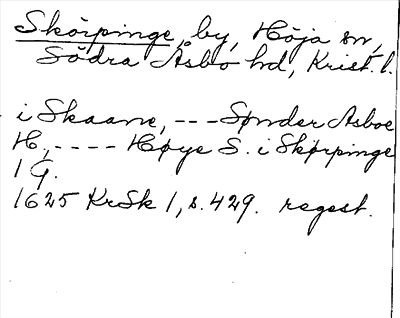 Skörpinge, by, Höja sn,
Södra Åsbo hd, Krist. l.
i Skaane, --- Sønder Asboe
H, ---- Høye S. i Skørpinge
1 G.
1625 KrSk 1, s. 429. regest.